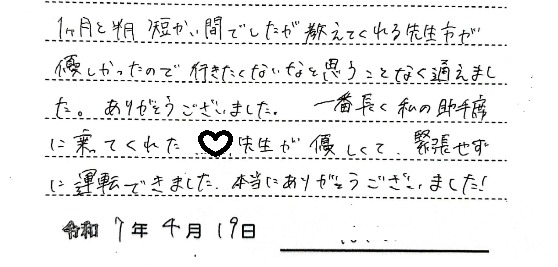 1ヶ月と半月 短かい間でしたが 教えてくれる先生方が
優しかったので 行きたくないなと思うことなく通えまし
た。ありがとうございました。 一番長く私の助手席
に乗ってくれた ♡先生が 優しくて、緊張せず
に運転できました。本当にありがとうございました!
令和 7年 4月 19日